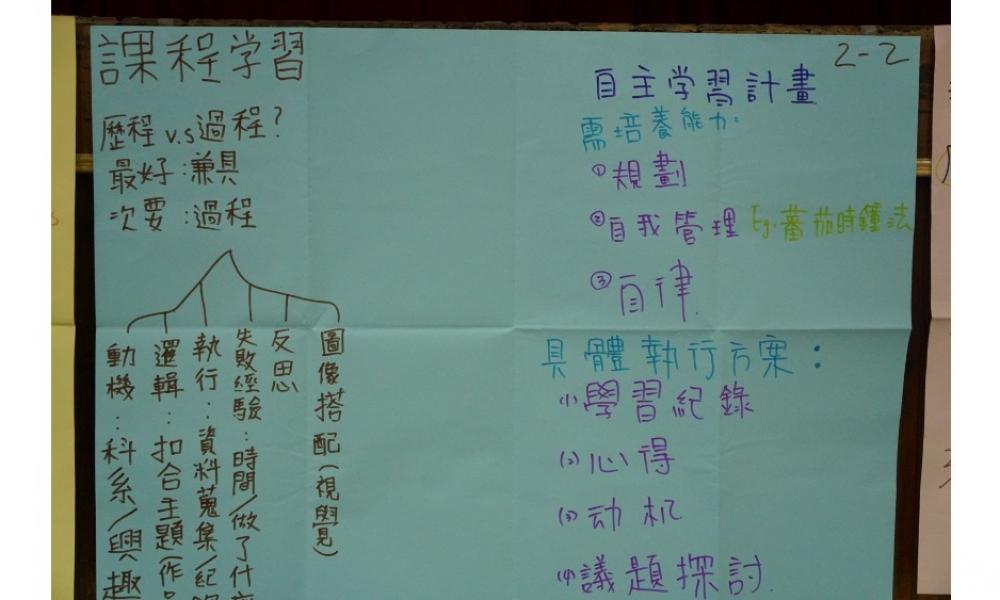 課程学習
歷程 v.s 過程?
最好:兼具
次要:過程
動機:科系/興趣
邏輯:扣合主題(作
執行:資料蒐集/紀
失敗經驗:時間/做了什
反思
圖像搭配(視覺)
2-2
自主学習計畫
需培養能力:
①規劃
②自我管理 Eg.蕃茄時鐘法
③自律
具體執行方案:
(1)學習紀錄
(2)心得
(3)动机
(4)議題探討